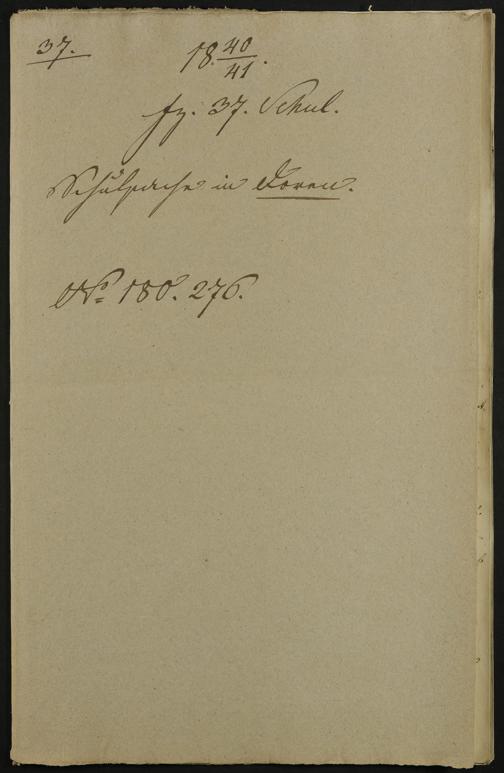 37.
18 40/41.
fz. 37. Schul.
Schulsache in Doren.
No 180. 276.